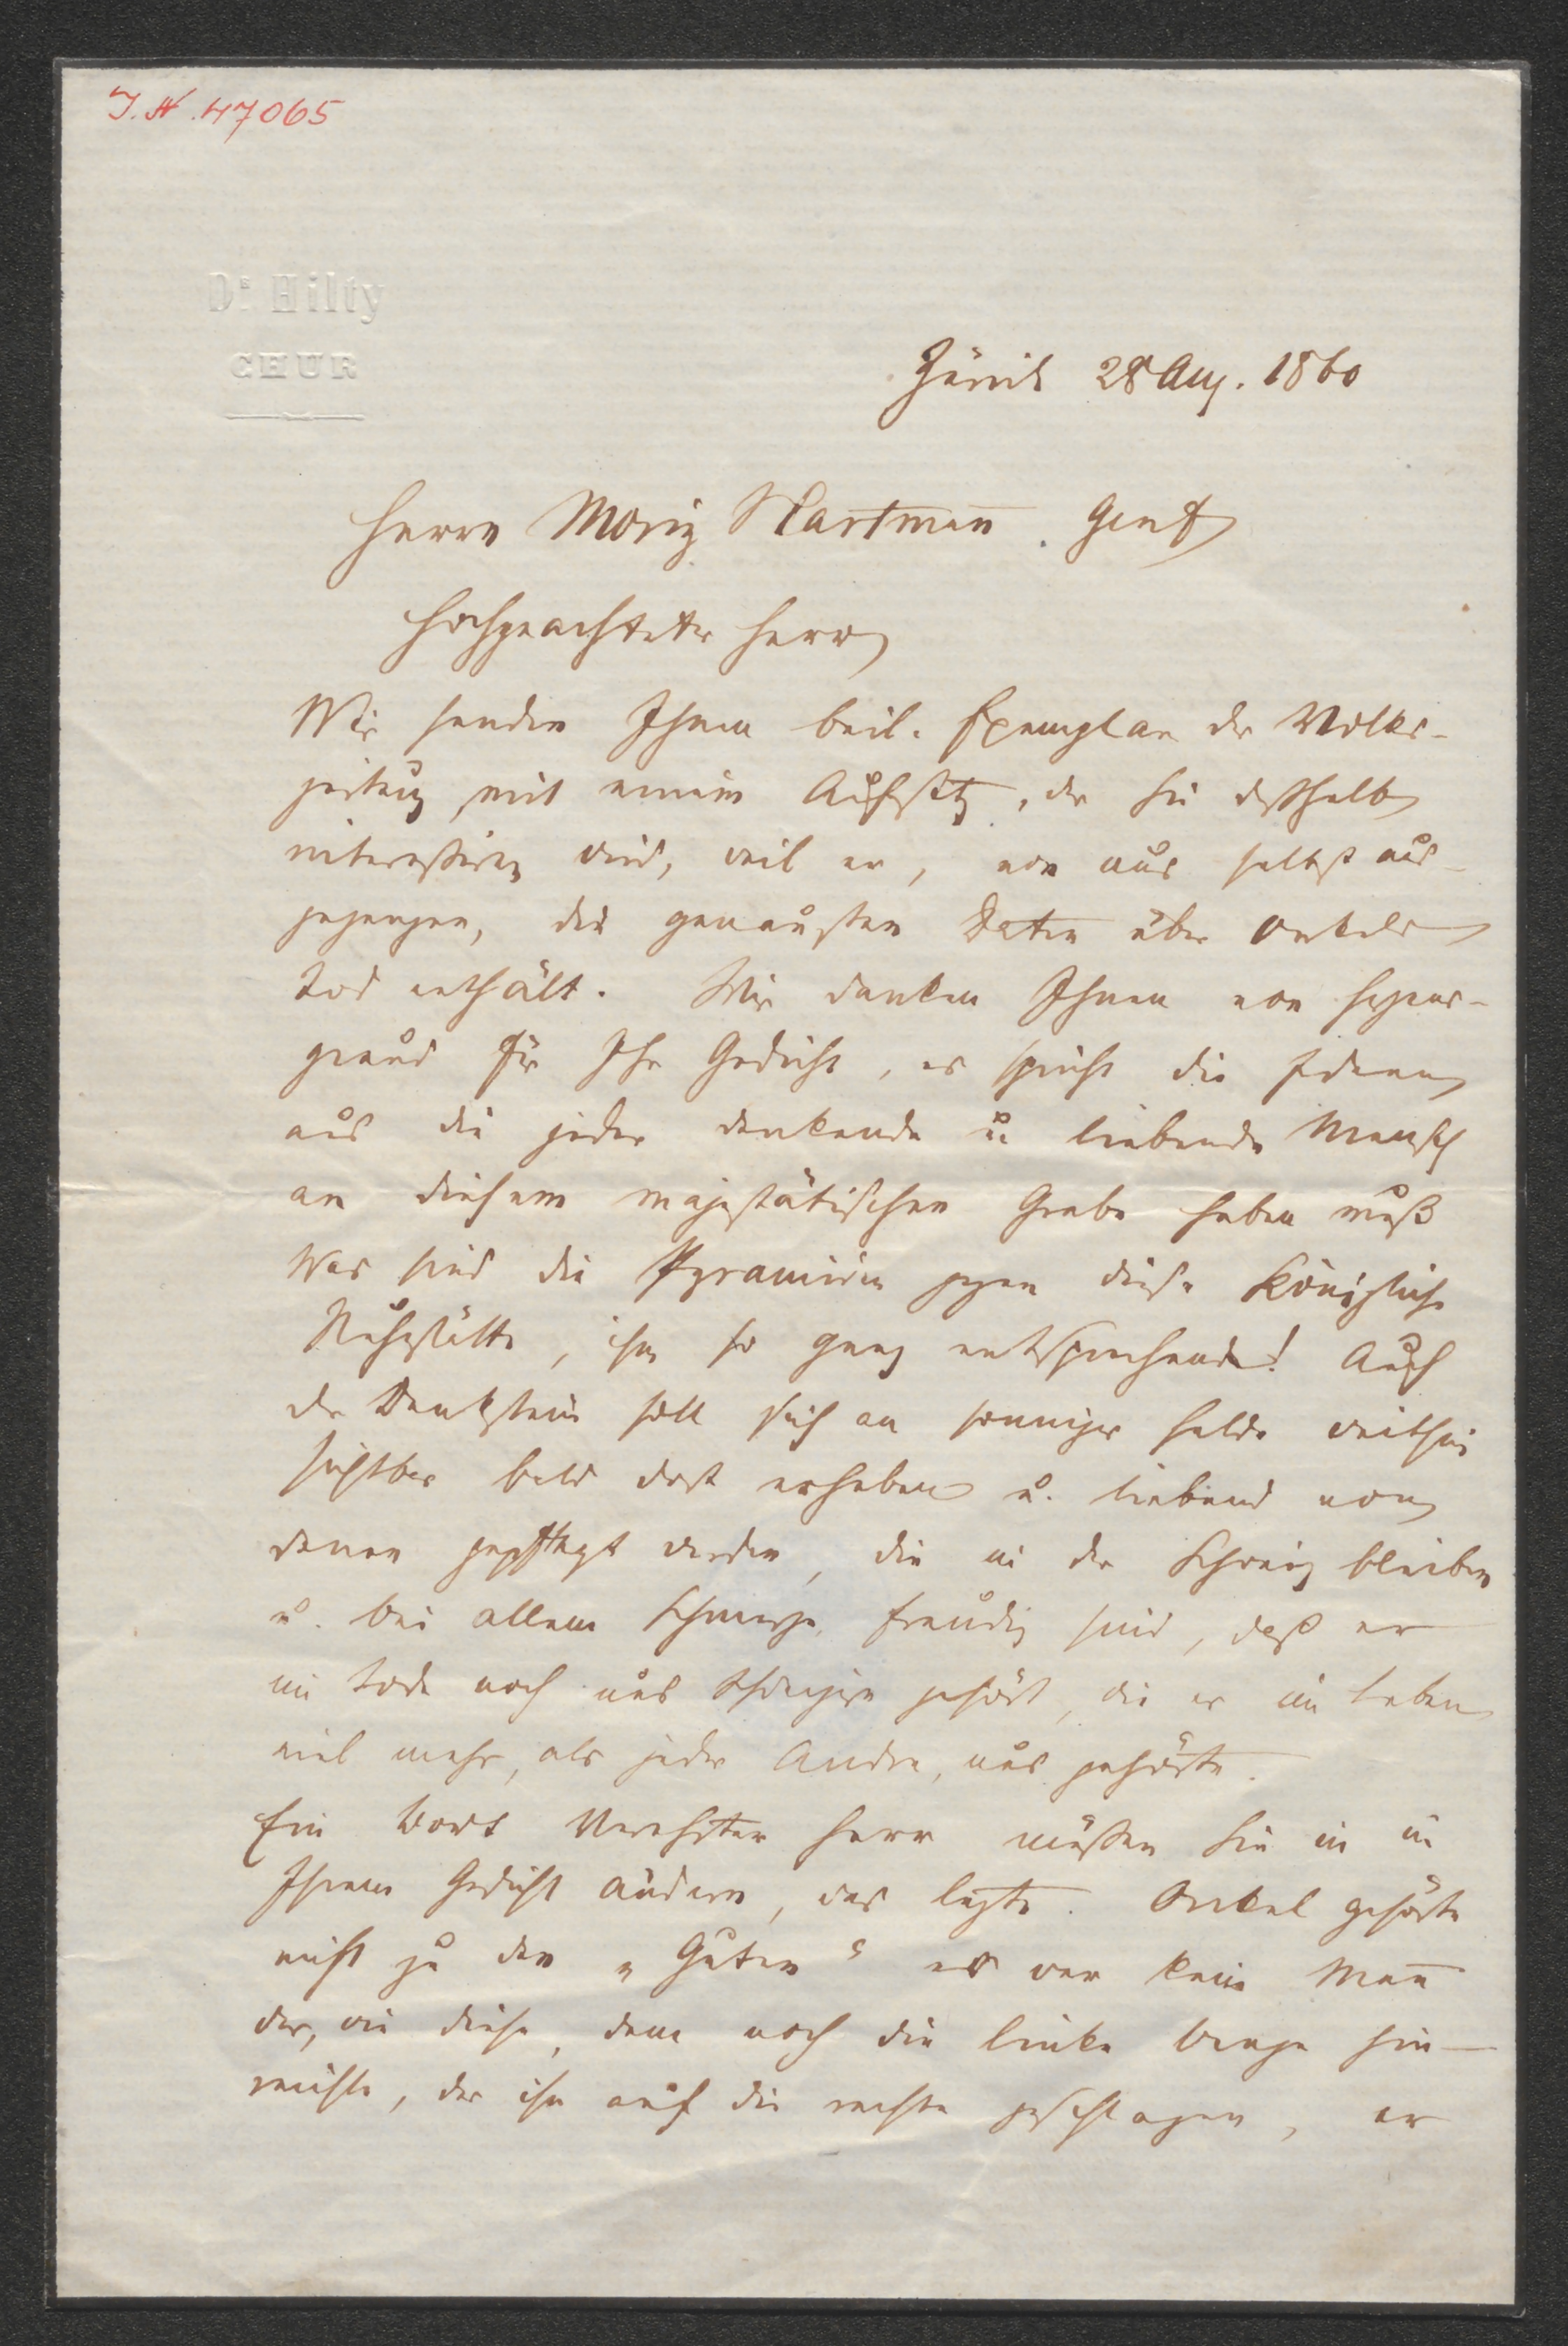 I.N.47065
Dr Hilty
CHUR
Zürich 28 Aug. 1860
Herrn Moriz Hartmann. Genf
Hochgeachteter Herr
Wir senden Ihnen beil. Exemplar der Volks-
zeitung mit einem Aufsatz, der Sie deßhalb
interessiren wird, weil er, von uns selbst aus-
gegangen, die genausten Daten über Onkels
Tod enthält. Wir danken Ihnen von Herzens-
grund für Ihr Gedicht, es spricht die Ideen
aus die jeder denkende u liebende Mensch
an diesem majestätischen Grabe haben muß
Was sind die Pyramiden gegen diese Königliche
Ruhestätte, ihm so ganz entsprechend! Auch
der Denkstein soll sich an sonniger Halde weithin
sichtbar bald dort erheben u. liebend von
denen gepflegt werden, die in der Schweiz bleiben
u. bei allem Schmerze freudig sind, daß er
im Tode noch uns Schweizern gehört, die er im Leben
viel mehr, als jeder Andre, uns gehörte.
Ein Wort Verehrter Herr müssen Sie in in
Ihrem Gedicht ändern, das lezte. Onkel gehörte
nicht zu den „Guten“ er war kein Mann
der, wie diese, dem noch die linke Wange hin-
reichte, der ihn auf die rechte geschlagen, er